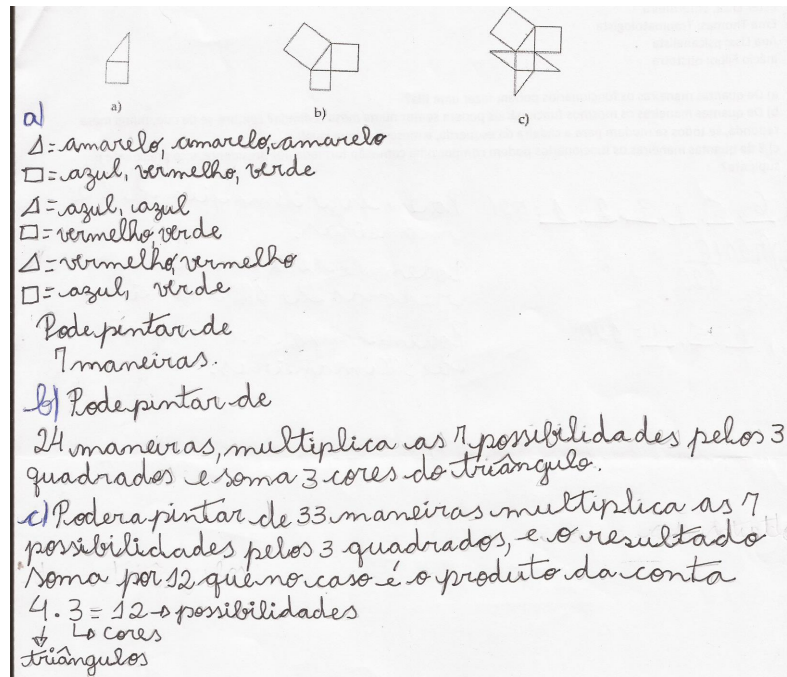 a)
b)
c)
a)
△ = amarelo, amarelo, amarelo
□ = azul, vermelho, verde
△ = azul, azul
□ = vermelho, verde
△ = vermelho, vermelho
□ = azul, verde
Pode pintar de
7 maneiras.
b) Pode pintar de
24 maneiras, multiplica as 7 possibilidades pelos 3
quadrados e soma 3 cores do triângulo.
c) Podera pintar de 33 maneiras multiplica as 7
possibilidades pelos 3 quadrados, e o resultado
soma por 12 que no caso é o produto da conta
4 . 3 = 12 → possibilidades
↓ ↳ cores
triângulos